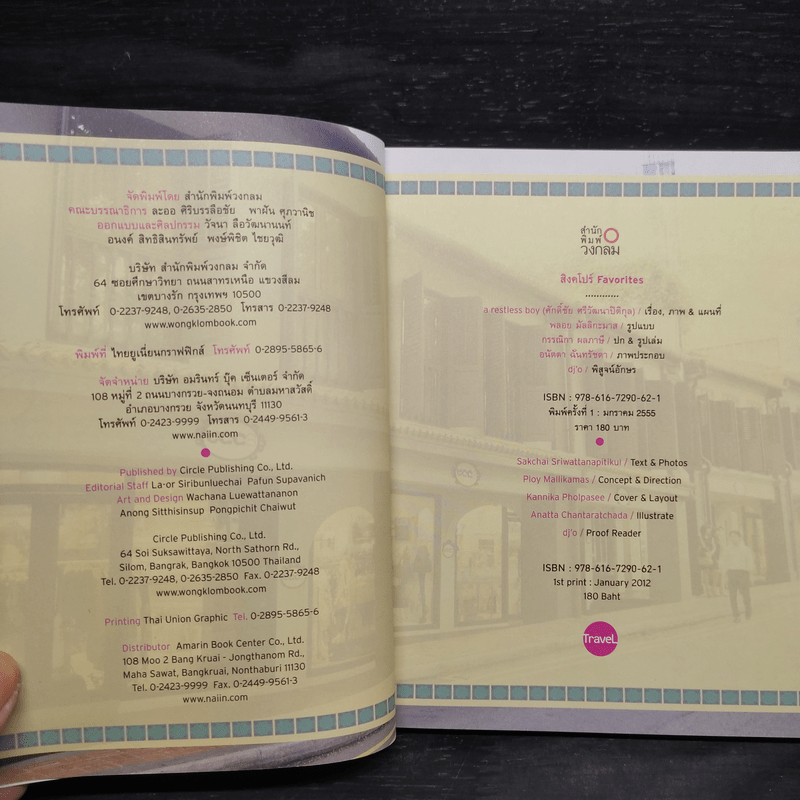 จัดพิมพ์โดย สำนักพิมพ์วงกลม
คณะบรรณาธิการ ละออ ศิริบรรลือชัย พาฝัน ศุภวานิช
ออกแบบและศิลปกรรม วัจนา ลือวัฒนานนท์
อนงค์ สิทธิสินทรัพย์ พงษ์พิชิต ไชยวุฒิ
บริษัท สำนักพิมพ์วงกลม จำกัด
64 ซอยศึกษาวิทยา ถนนสาทรเหนือ แขวงสีลม
เขตบางรัก กรุงเทพฯ 10500
โทรศัพท์ 0-2237-9248, 0-2635-2850 โทรสาร 0-2237-9248
www.wongklombook.com
พิมพ์ที่ ไทยยูเนี่ยนกราฟฟิกส์ โทรศัพท์ 0-2895-5865-6
จัดจำหน่าย บริษัท อมรินทร์ บุ๊ค เซ็นเตอร์ จำกัด
108 หมู่ที่ 2 ถนนบางกรวย-จงถนอม ตำบลมหาสวัสดิ์
อำเภอบางกรวย จังหวัดนนทบุรี 11130
โทรศัพท์ 0-2423-9999 โทรสาร 0-2449-9561-3
www.naiin.com
Published by Circle Publishing Co., Ltd.
Editorial Staff La-or Siribunluechai Pafun Supavanich
Art and Design Wachana Luewattananon
Anong Sitthisinsup Pongpichit Chaiwut
Circle Publishing Co., Ltd.
64 Soi Suksawittaya, North Sathorn Rd.,
Silom, Bangrak, Bangkok 10500 Thailand
Tel. 0-2237-9248, 0-2635-2850 Fax. 0-2237-9248
www.wongklombook.com
Printing Thai Union Graphic Tel. 0-2895-5865-6
Distributor Amarin Book Center Co., Ltd.
108 Moo 2 Bang Kruai - Jongthanom Rd.,
Maha Sawat, Bangkruai, Nonthaburi 11130
Tel. 0-2423-9999 Fax. 0-2449-9561-3
www.naiin.com
สำนัก
พิมพ์
วงกลม
สิงคโปร์ Favorites
............
a restless boy (ศักดิ์ชัย ศรีวัฒนาปิติกุล) / เรื่อง, ภาพ & แผนที่
พลอย มัลลิกะมาส / รูปแบบ
กรรณิกา ผลภาษี / ปก & รูปเล่ม
อนัตตา ฉันทรัชดา / ภาพประกอบ
dj'o / พิสูจน์อักษร
ISBN : 978-616-7290-62-1
พิมพ์ครั้งที่ 1 : มกราคม 2555
ราคา 180 บาท
Sakchai Sriwattanapitikul / Text & Photos
Ploy Mallikamas / Concept & Direction
Kannika Pholpasee / Cover & Layout
Anatta Chantaratchada / Illustrate
dj'o / Proof Reader
ISBN : 978-616-7290-62-1
1st print : January 2012
180 Baht
TraveL